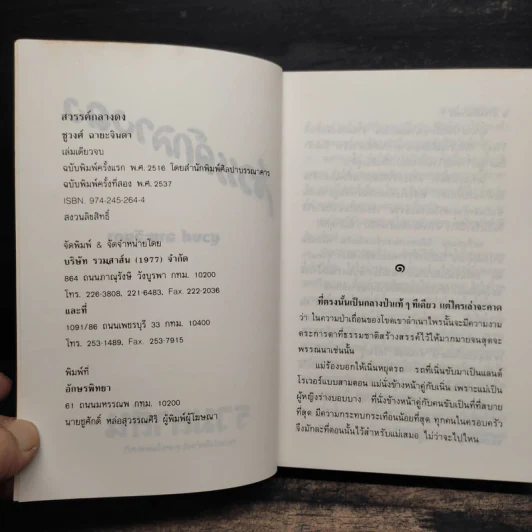 สวรรค์กลางดง
ชูวงศ์ ฉายะจินดา
เล่มเดียวจบ
ฉบับพิมพ์ครั้งแรก พ.ศ. 2516 โดยสำนักพิมพ์ศิลปาบรรณาคาร
ฉบับพิมพ์ครั้งที่สอง พ.ศ. 2537
ISBN. 974-245-264-4
สงวนลิขสิทธิ์
จัดพิมพ์ & จัดจำหน่ายโดย
บริษัท รวมสาส์น (1977) จำกัด
864 ถนนภาณุรังษี วังบูรพา กทม. 10200
โทร. 226-3808, 221-6483, Fax. 222-2036
และที่
1091/86 ถนนเพชรบุรี 33 กทม. 10400
โทร. 253-1489, Fax. 253-7915
พิมพ์ที่
อักษรพิทยา
61 ถนนมหรรณพ กทม. 10200
นายชูศักดิ์ หล่อสุวรรณศิริ ผู้พิมพ์ผู้โฆษณา
๑
ที่ตรงนั้นเป็นกลางป่าแท้ ๆ ทีเดียว แต่ใครเล่าจะคาด
ว่า ในความป่าเถื่อนของโขดเขาลำเนาไพรนั้นจะมีความงาม
ตระการตาที่ธรรมชาติสร้างสรรค์ไว้ให้มากมายจนสุดจะ
พรรณนาเช่นนั้น
แม่ร้องบอกให้เนิ่นหยุดรถ รถที่เนิ่นขับมาเป็นแลนด์
โรเวอร์แบบสามตอน แม่นั่งข้างหน้าคู่กับเนิ่น เพราะแม่เป็น
ผู้หญิงร่างบอบบาง ที่นั่งข้างหน้าคู่กับคนขับเป็นที่ที่สบาย
ที่สุด มีความกระทบกระเทือนน้อยที่สุด ทุกคนในครอบครัว
จึงมักละที่ตอนนั้นไว้สำหรับแม่เสมอ ไม่ว่าจะไปไหน